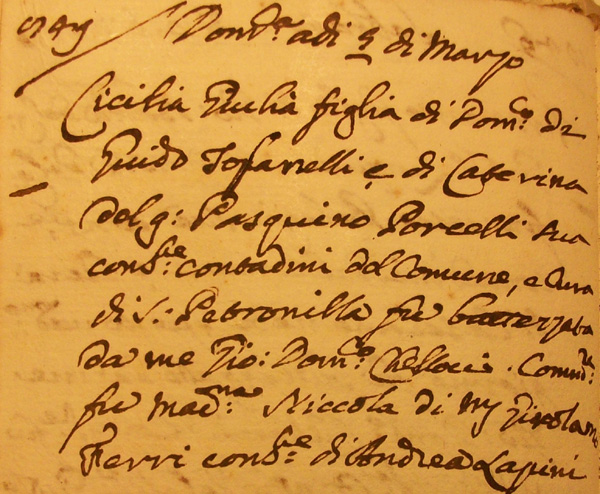 Dom.ca adi 9 di Marzo
Cicilia Giulia figlia di Dom.co di
Guido Tofanelli e di Caterina
del q: Pasquino Porcelli sua
cons.te contadini del Comune, e Cura
di S: Petronilla fu battezzata
da me Gio: Dom.co
fu mad.na Niccola di
Ferri cons.te di Andrea Lapini